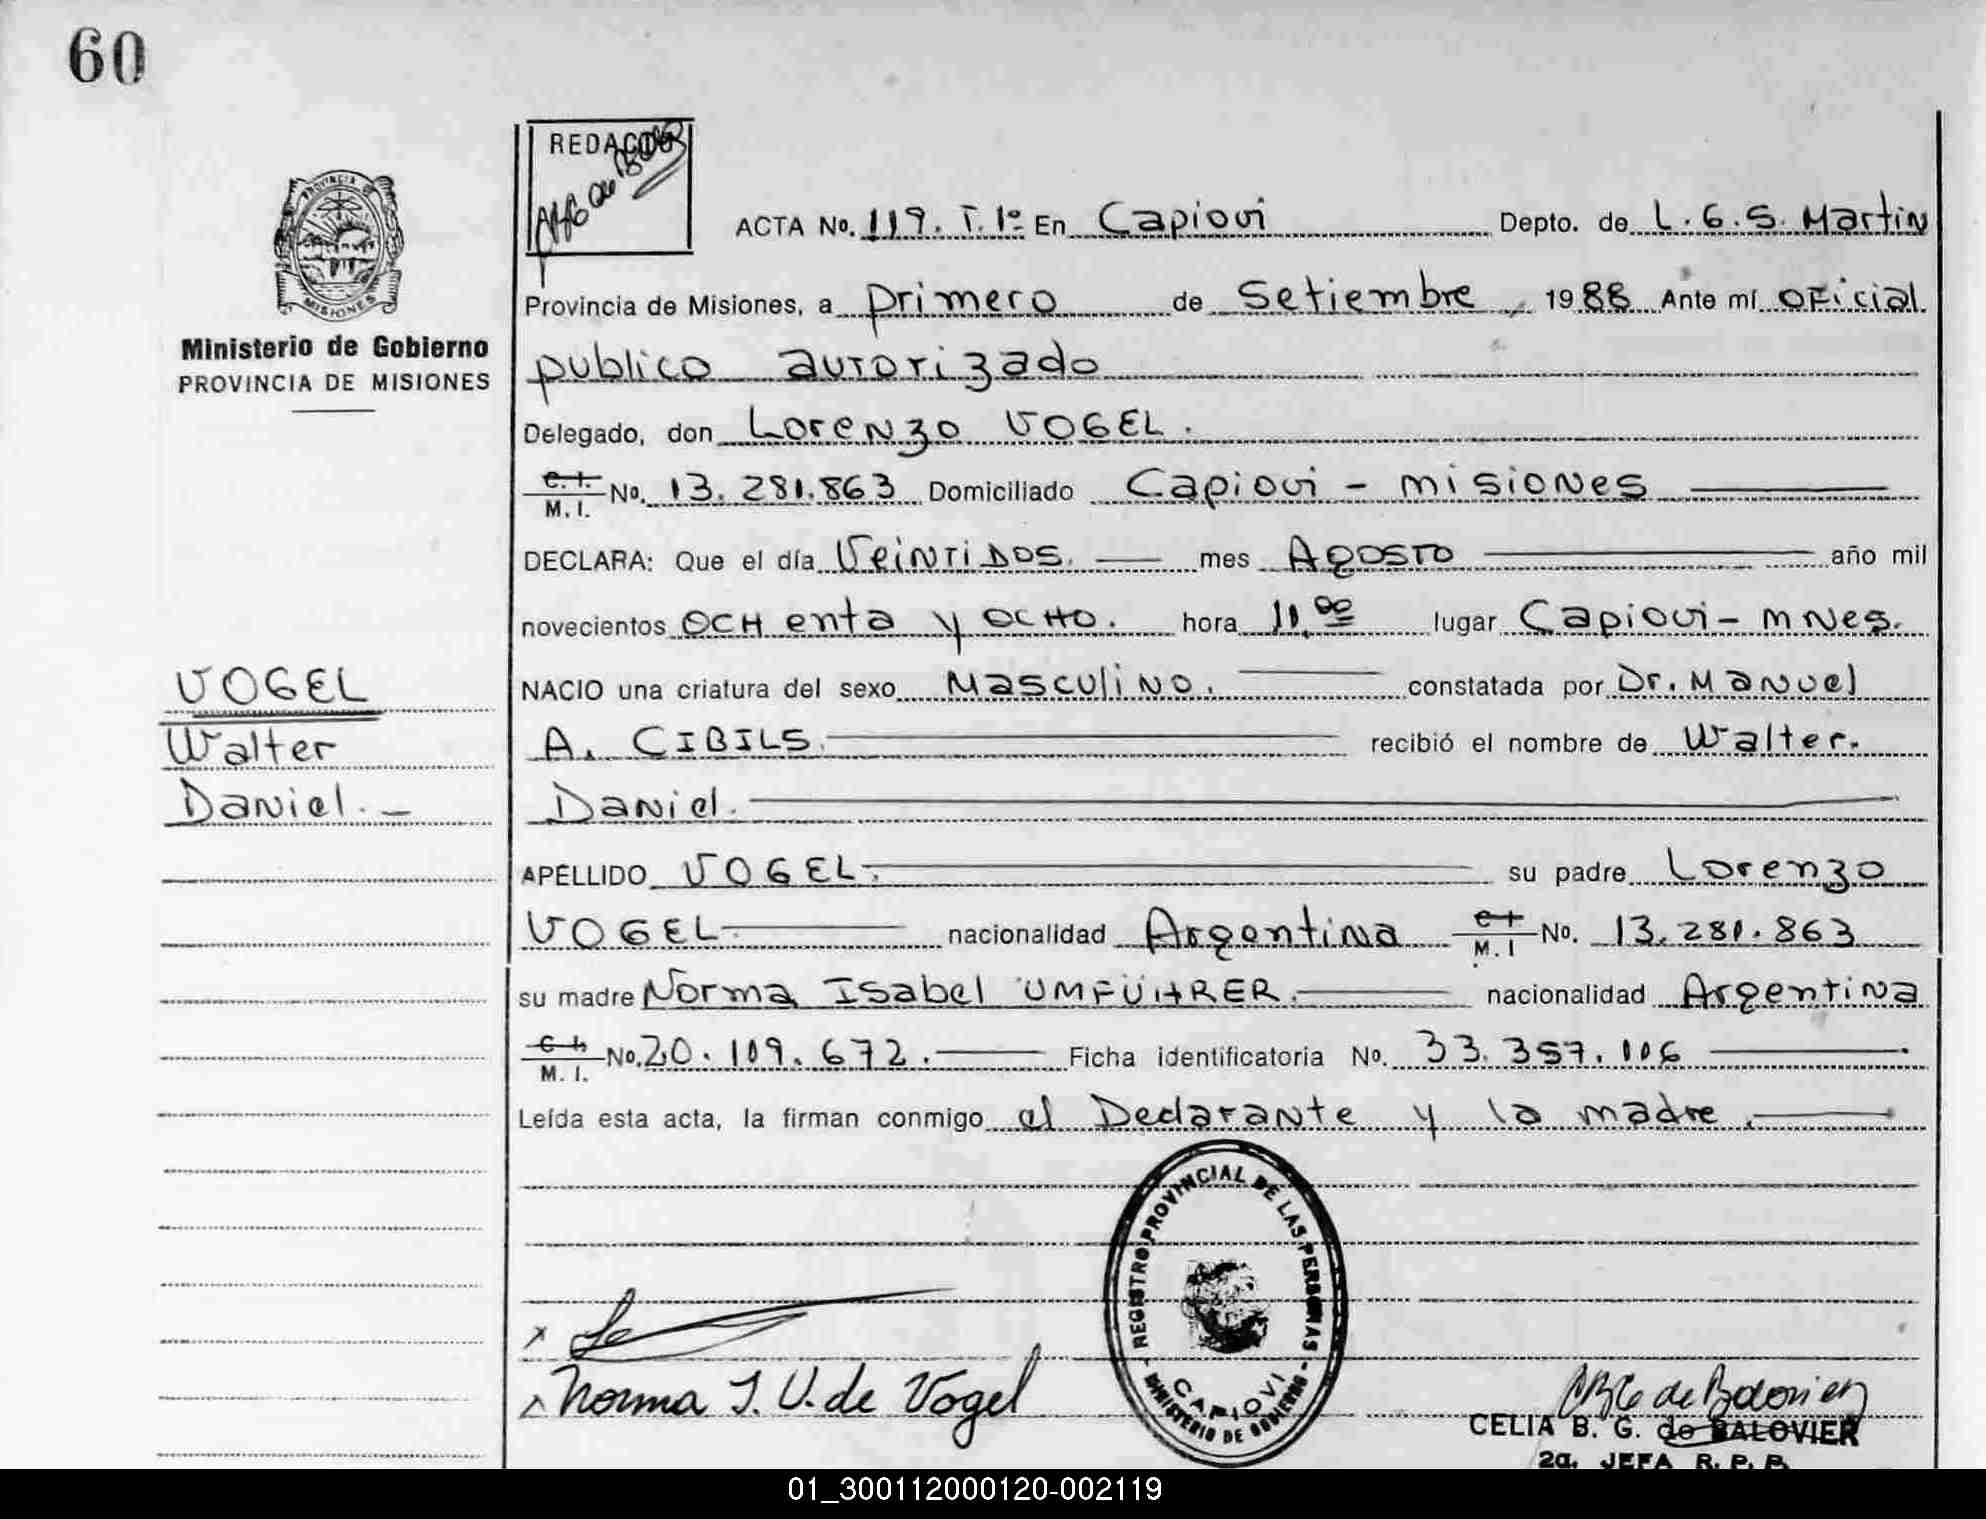 60
REDACTOR
PROVINCIA DE
MISIONES
Ministerio de Gobierno
PROVINCIA DE MISIONES
ACTA No. 119. T. 1º En Capiovi Depto. de L. G. S. Martin
Provincia de Misiones, a primero de Setiembre, 1988 Ante mí oficial
publico autorizado
Delegado, don Lorenzo VOGEL.
C. I. M. I. No. 13. 281. 863 Domiciliado Capiovi - misiones
DECLARA: Que el día Veintidos. mes Agosto año mil
novecientos OCHenta y OCHO. hora 11,00 lugar Capiovi - mnes.
VOGEL
NACIO una criatura del sexo Masculino. constatada por Dr. Manuel
Walter
A. CIBILS. recibió el nombre de Walter.
Daniel. -
Daniel.
APELLIDO VOGEL. su padre Lorenzo
VOGEL. nacionalidad Argentina C I M. I No. 13. 281. 863
su madre Norma Isabel UMFÜHRER. nacionalidad Argentina
C. I. M. I. No. 20. 109. 672. Ficha identificatoria No. 33. 357. 106
Leída esta acta, la firman conmigo el Declarante y la madre.
REGISTRO PROVINCIAL DE LAS PERSONAS
MINISTERIO DE GOBIERNO
CAPIOVI
x
x Norma I. U. de Vogel
CELIA B. G. de BALOVIER
2a. JEFA R. P. P.
01_300112000120-002119